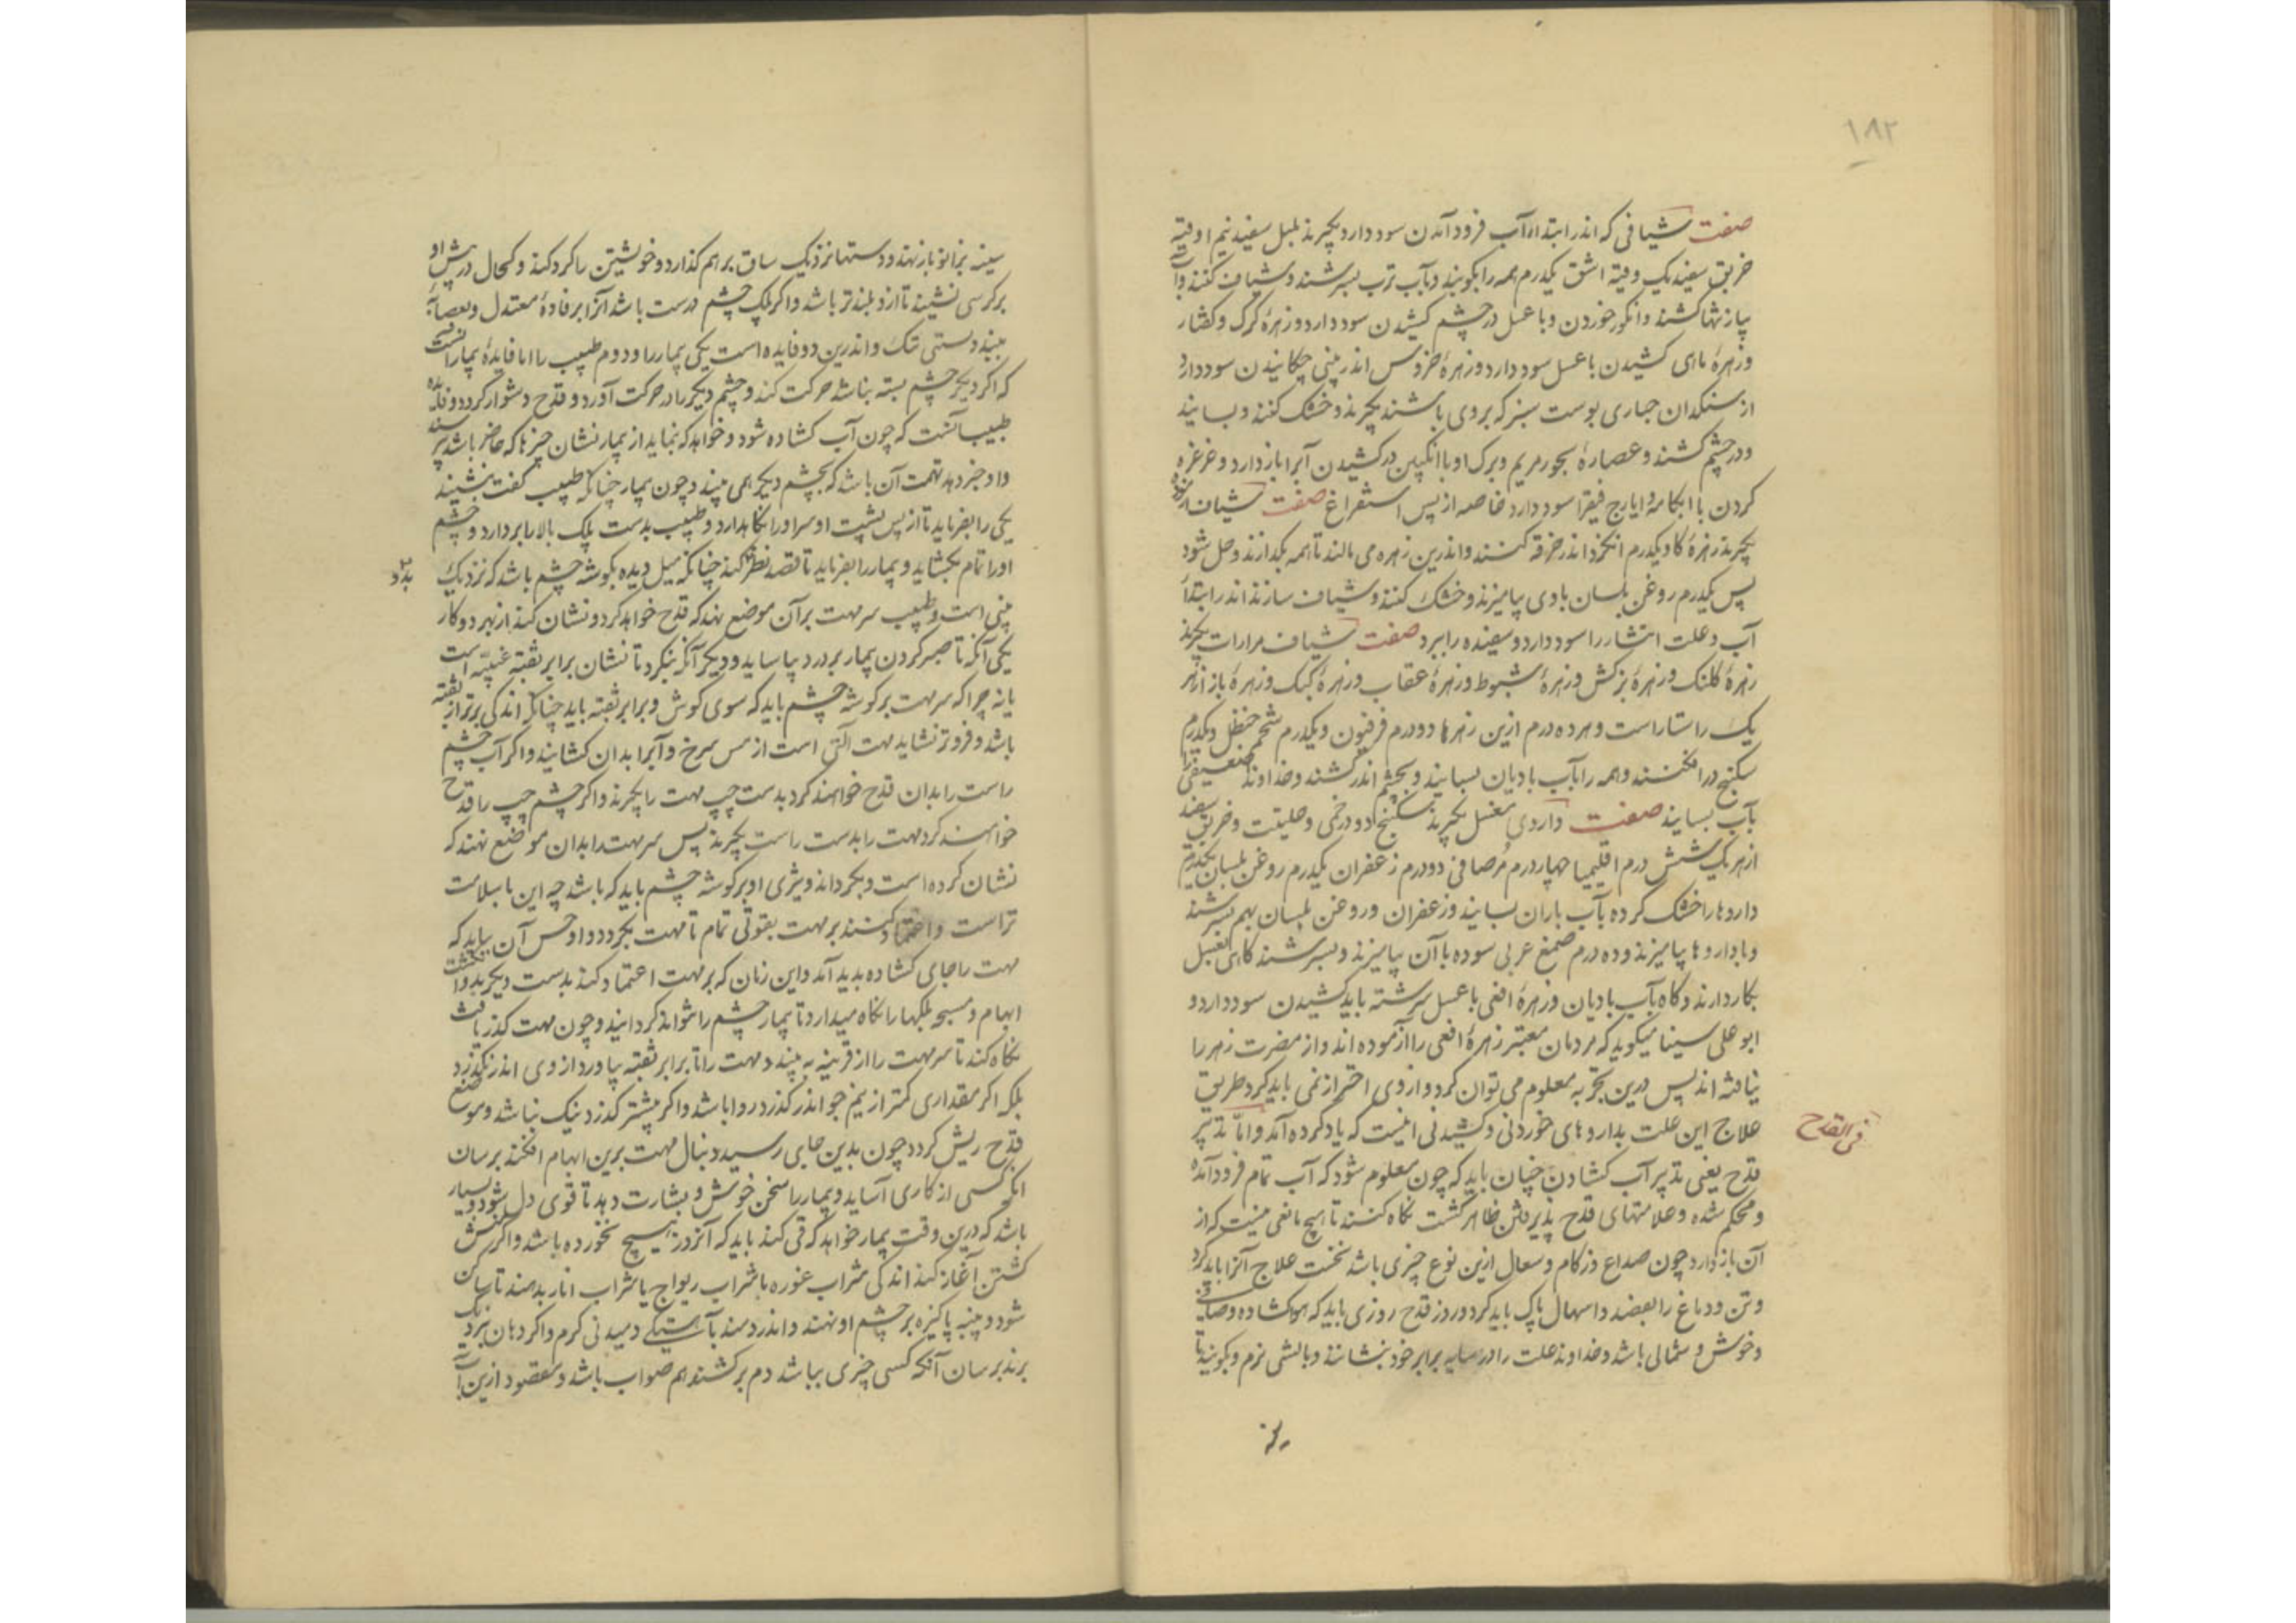 ۱۸۲
صفت شیافی که اندر ابتداء آب فرود آمدن سود دارد بگیرند پلپل سفید نیم اوقیه
خربق سفید یک وقیه اشق یکدرم همه را بکوبند و بآب ترب بسرشند و شیاف کنند و آب
پیاز تنها کشند و انگور خوردن و با عسل در چشم کشیدن سود دارد و زهرهٔ کرک و کفتار
و زهرهٔ ماهی کشیدن با عسل سود دارد و زهرهٔ خروس اندر بینی چکانیدن سود دارد
از سنکدان حباری پوست سبز که بروی باشد بگیرند و خشک کنند و بسایند
و در چشم کشند و عصارهٔ بخور مریم و برک او با انگبین در کشیدن آب را باز دارد و غرغره
کردن با ابکامه و ایارج فیقرا سود دارد خاصه از پس استفراغ صفت شیاف
بگیرند زهرهٔ کاو یکدرم انگزد اندر خرقه کنند و اندرین زهره می مالند تا همه بگدازند و حل شود
پس یکدرم روغن بلسان با وی بیامیزند و خشک کنند و شیاف سازند اندر ابتداء
آب و علت انتشار را سود دارد و سفیده را ببرد صفت شیاف مرارات بگیرند
زهرهٔ کلنک و زهرهٔ بزکش و زهرهٔ شبوط و زهرهٔ عقاب و زهرهٔ کبک و زهرهٔ باز از هر
یک راستاراست و هر ده درم ازین زهرها دو درم فرفیون و یکدرم شحم حنظل و یکدرم
سکبینج در افکنند و همه را بآب بادیان بسایند و بچشم اندر کشند و خداوند
بآب بسایند صفت داروی بگیرند سکبینج دو درخمی و حلتیت و خربق سفید
از هر یک شش درم اقلیمیا چهار درم مر صافی دو درم زعفران یکدرم روغن بلسان یکدرم
داروها را خشک کرده بآب باران بسایند و زعفران و روغن بلسان بهم بسرشند
و با داروها بیامیزند و ده درم صمغ عربی سوده با آن بیامیزند و بسرشند گاهی بعسل
بکار دارند و گاه بآب بادیان و زهرهٔ افعی با عسل سرشته باید کشیدن سود دارد و
ابو علی سینا میگوید که مردمان معتبر زهرهٔ افعی را آزموده اند و از مضرت زهر را
نیافته اند پس درین تجربه معلوم می توان کرد و از وی احتراز نمی باید کرد و طریق
علاج این علت بداروهای خوردنی و کشیدنی اینست که یاد کرده آمد و اما تدبیر
فی القدح
قدح یعنی تدبیر آب کشادن چنان باید که چون معلوم شود که آب تمام فرود آمده
و محکم شده و علامتهای قدح پذیرفتن ظاهر کشت نگاه کنند تا هیچ مانعی نیست که از
آن باز دارد چون صداع و زکام و سعال ازین نوع چیزی باشد نخست علاج آنرا باید کرد
و تن و دماغ را بفصد و اسهال پاک باید کرد و روز قدح روزی باید که هوا کشاده و صافی
و خوش و شمالی باشد و خداوند علت را در سایه برابر خود بنشانند و بالشی نرم و بگویند تا
سینه بزانو باز نهند و دستها نزدیک ساق بر هم گذارد و خویشتن را کرد کند و کحال در پیش او
بر کرسی نشیند تا ازو بلندتر باشد و اگر پلک چشم درست باشد آنرا برفادهٔ معتدل و بعصابه
ببندد بستنی تنک و اندرین دو فایده است یکی بیمار را و دوم طبیب را اما فایدهٔ بیمار آنست
که اگر دیگر چشم بسته نباشد حرکت کند و چشم دیگر را در حرکت آورد و قدح دشوار گردد و فایده
طبیب آنست که چون آب کشاده شود و خواهد که بنماید از بیمار نشان چیزها که حاضر باشد
و او خبر دهد تهمت آن باشد که بچشم دیگر همی بیند و چون بیمار چنانکه طبیب گفت بنشیند
یکی را بفرماید تا از پس پشت او سر او را نگاهدارد و طبیب بدست پلک بالا را بر دارد و چشم
او را تمام بگشاید و بیمار را بفرماید تا قصد نظر کند چنانکه میل دیده بگوشه چشم باشد که نزدیک
بینی است و طبیب سر مهت بر آن موضع نهد که قدح خواهد کرد و نشان کند از بهر دو کار
یکی آنکه تا صبر کردن بیمار بر درد بیازماید و دیگر آنکه بنگرد تا نشان برابر ثقبه عنبیه است
یا نه چرا که سر مهت بر گوشه چشم باید که سوی گوش و برابر ثقبه باید چنانکه اندکی برتر از ثقبه
باشد و فروتر نشاید مهت آلتی است از مس سرخ و آب را بدان کشایند و اگر آب چشم
راست را بدان قدح خواهند کرد بدست چپ مهت را بگیرند و اگر چشم چپ را قدح
خواهند کرد مهت را بدست راست بگیرند پس سر مهت را بدان موضع نهند که
نشان کرده است و بگرداند و تیزی او بر گوشه چشم باید که باشد چه این با سلامت
تر است و اعتماد کنند بر مهت بقوتی تمام تا مهت بگردد و او حس آن بیابد که
مهت را جای کشاده پدید آمد و این زمان که بر مهت اعتماد کند بدست دیگر
ابهام و مسبحه پلکها را نگاه میدارد تا بیمار چشم را نتواند گردانید و چون مهت گذر یافت
نگاه کند تا سر مهت را از قرنیه به بیند و مهت را تا برابر ثقبه بیاورد از وی اندر نگذرد
بلکه اگر مقداری کمتر از نیم جو اندر گذرد روا باشد و اگر بیشتر گذرد نیک نباشد و موضع
قدح ریش گردد چون بدین جای رسید دنبال مهت برین ابهام افکند برسان
آنکه کسی از کاری آساید و بیمار را سخن خوش و بشارت دهد تا قوی دل شود و بسیار
باشد که درین وقت بیمار خواهد که قی کند باید که آنروز هیچ نخورده باشد و اگر منش
کشتن آغاز کند اندکی شراب غوره یا شراب ریواج یا شراب انار بدهند تا ساکن
شود و پنبه پاکیزه بر چشم او نهند و اندر دمند بآهستگی دمیدنی گرم و اگر دهان نزدیک
برند برسان آنکه کسی چیزی بباشد دم برکشند هم صواب باشد و مقصود ازین آن